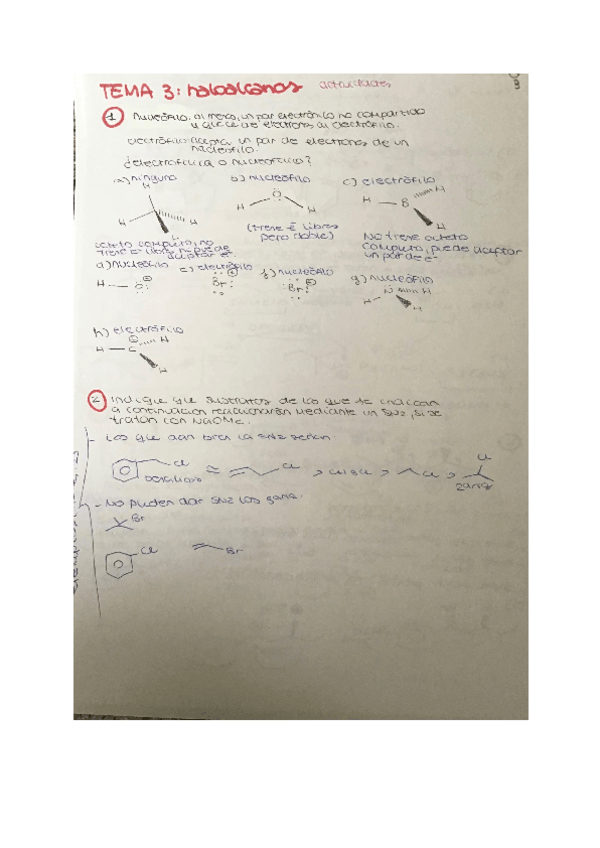 TEMA 3: haloalcanos actividades
3
1 Nucleófilo: al menos, un par electrónico no compartido
y que cede electrones al electrófilo.
electrófilo: acepta un par de electrones de un
nucleófilo.
¿electrofílica o nucleofílico?
a) ninguno b) nucleófilo c) electrófilo
H
H H
H
H O H
H B H
H
(tiene ē libres
pero doble)
octeto completo, no
tiene ē libres ni puede
aceptar ē
No tiene octeto
completo, puede aceptar
un par de ē
d) nucleófilo e) electrófilo f) nucleófilo g) nucleófilo
H — O: Br: Br: H N H
H
h) electrófilo
H — C H
H
2 Indique que sustratos de los que se indican
a continuación reaccionarán mediante un SN2, si se
tratan con NaOMe.
- Los que dan bien la SN2 serían:
Cl Cl Cl Cl
bencílico
2ario
- No pueden dar SN2 los
Br
Cl Br